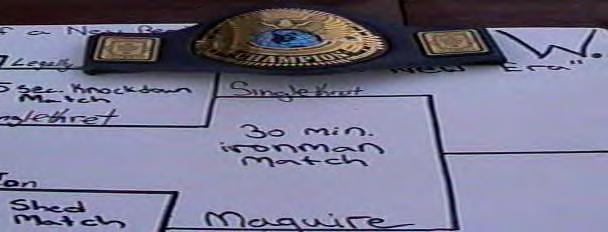 f a New Be
Legally
CHAMPION
W.
New Era"
5 sec. Knockdown
Match
Singlethret
nglethret
30 min.
ironman
Match
ton
Shed
Match
Maguire